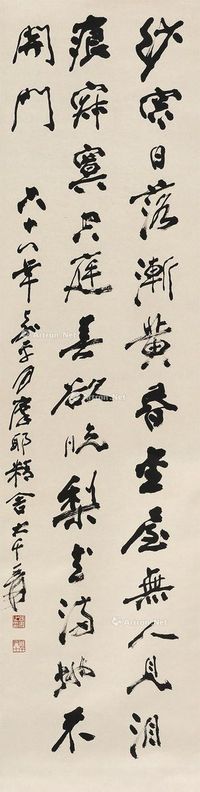 紗窗日落漸黃昏金屋無人見淚
痕寂寞空庭春欲晚梨花滿地不
開門
六十八年嘉平月摩耶精舍大千爰